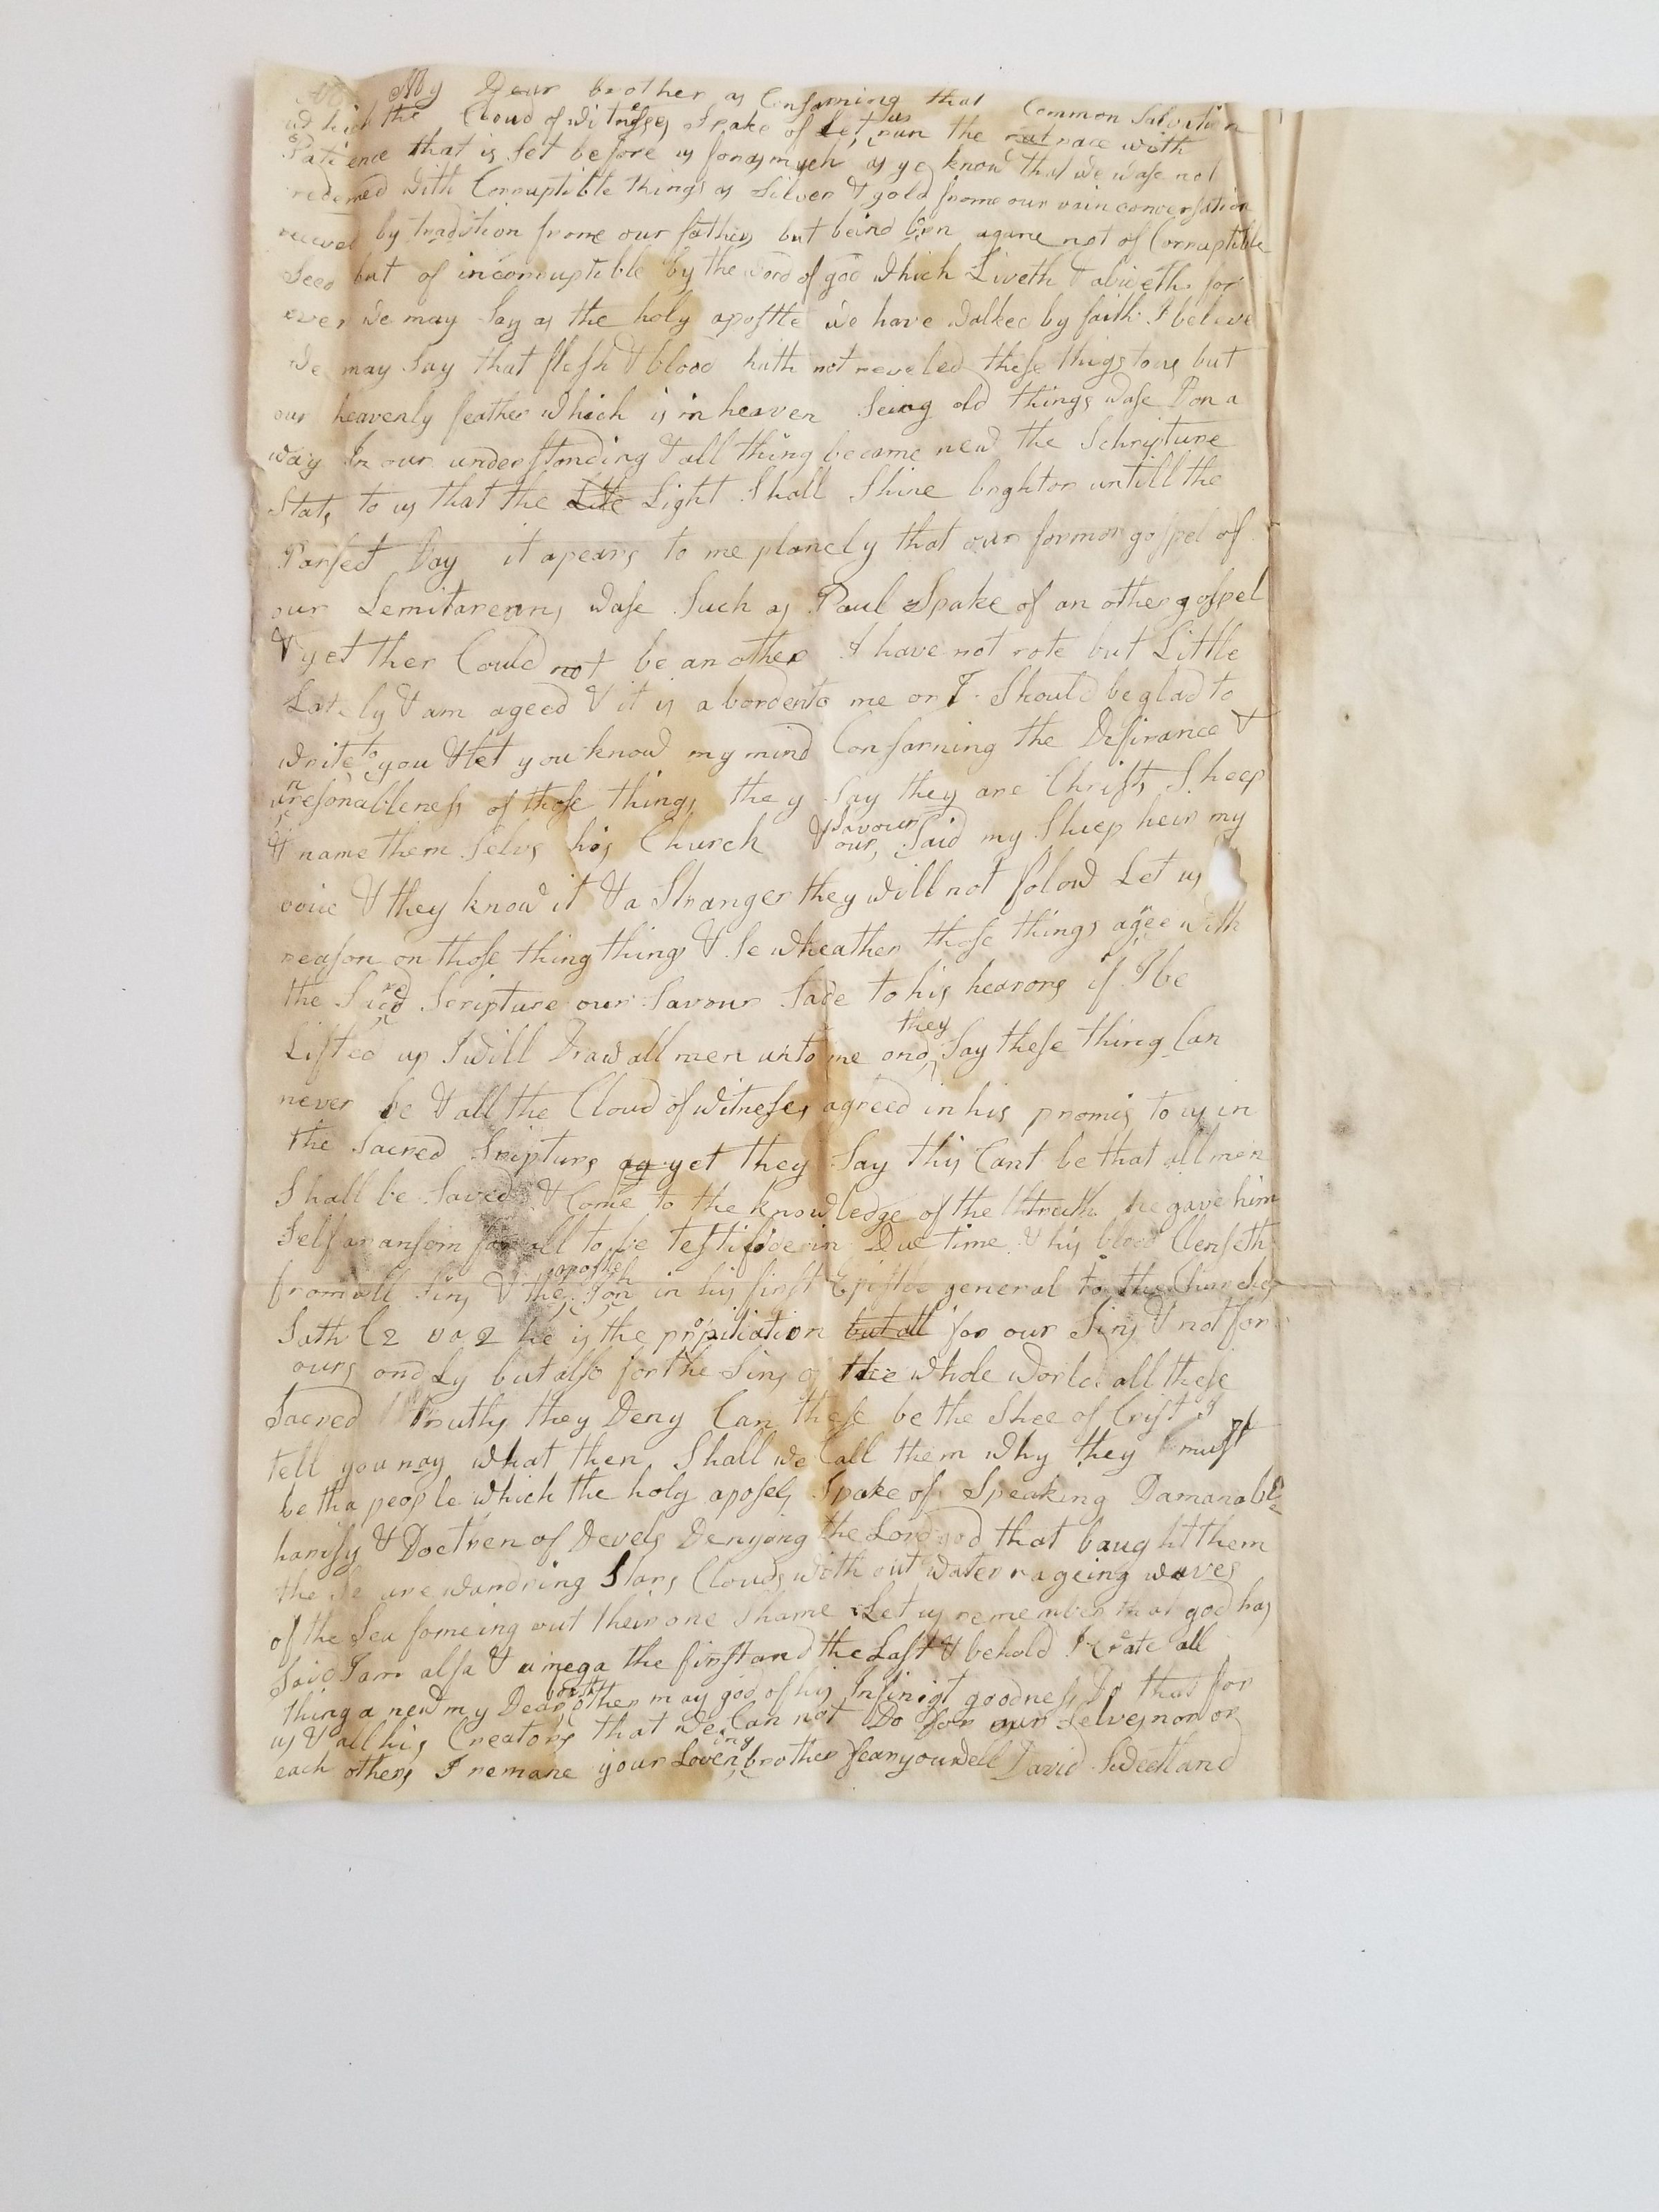 My Dear brother as Consarning that Common Salvation
which the Cloud of witneses Spake of Let us run the rat race with
Patience that is Set before us forasmuch as ye know that we wase not
redemed with Corruptible things as Silver & gold frome our vain conversation
by tradition frome our fathers but beind born agane not of Corruptible
Seed but of incorruptible by the word of god which Liveth & abideth for
ever we may Say as the holy apostle we have walked by faith I beleve
we may Say that flesh & blood hath not reveled these things to us but
our heavenly feather which is in heaven Seing old things wase Don a
way In our understanding & all thing became new the Schripture
Stats to us that the Lite Light Shall Shine brghtor untill the
Parfect Day it apears to me planely that our formor gospel of
our Lemitarerans wase Such as Paul Spake of an other gospel
& yet ther Could not be an other I have not rote but Little
Lately & am ageed & it is a borden to me or I Should be glad to
write to you & let you know my mind Consarning the Disirance &
unresonableness of those things they Say they are Christs Sheep
& name them Selvs his Church & our Savour Said my Sheep heir my
voice & they know it & a Stranger they will not folow Let us
reason on those thing things & Se wheather those things agree with
the Sacred Scripture our Savour Sade to his hearors if I be
Lifted up I will Draw all men unto me and they Say these thing Can
never be & all the Cloud of witneses agreed in his promis to us in
the Sacred Scripturs ag yet they Say this Cant be that all men
Shall be Saved & Come to the knowledge of the truth he gave him
Self a ransom for all to be testified in Due time & his blood Clenseth
from all Sins & the apostel Jon in his first Epistle general to the Churches
Sath C2 va 2 he is the propitiation but all for our Sins & not for
ours ondLy but also for the Sins of the whole World all these
Sacred Truths they Deny Can these be the Shee of Crist I
tell you nay what then Shall we Call them why they must
be tha people which the holy aposels Spake of Speaking Damanable
harisy & Doctren of Devels Denying the Lord god that baught them
these are wandring Stars Clouds with out water rageing waves
of the Sea fomeing out their one Shame Let us remember that god has
Said I am alfa & amega the first and the Last & behold I Crate all
thing a new my Dear brother may god of his Infinigt goodness Do that for
us & all his Creators that we Can not Do for our Selves nor or
each others I remane your Loveing brother fear you well David Sweetland